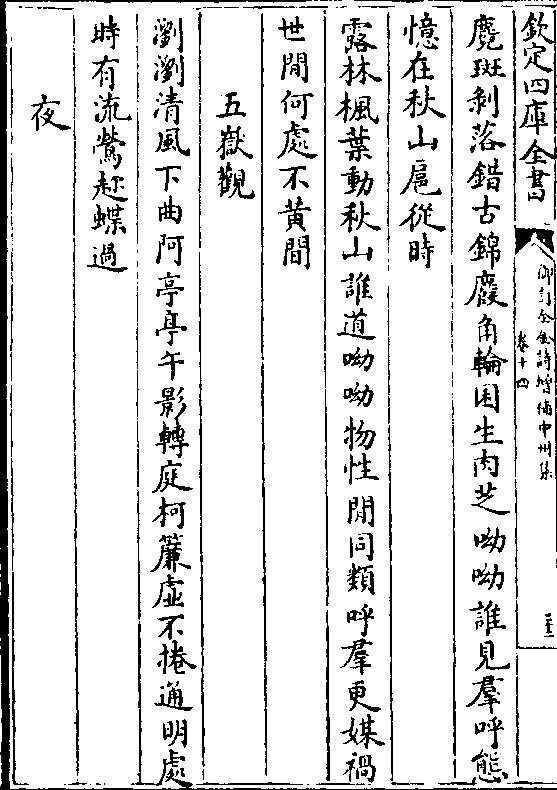 欽定四庫全書
御訂全金詩增補中州集
卷十四
麑斑剝落錯古錦麚角輪囷生肉芝呦呦誰見羣呼態
憶在秋山扈從時
露林楓葉動秋山誰道呦呦物性閒同類呼羣更媒禍
世間何處不黄間
五嶽觀
瀏瀏清風下曲阿亭亭午影轉庭柯簾虛不捲通明處
時有流鶯趂蝶過
夜